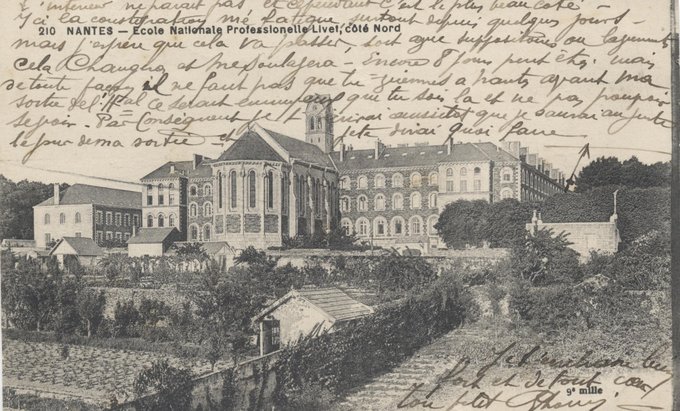 l'intérieur ne parait pas, et cependant c'est le plus beau côté -
Ici la constipation me fatigue surtout depuis quelques jours -
210 NANTES — Ecole Nationale Professionnelle Livet, côté Nord
mais j'espère que cela va passer, soit que suppositoires ou lavements
cela changera et me soulagera - encore 8 jours peut être, mais
de toute façon il ne faut pas que tu viennes à Nantes avant ma
sortie de l'Hal ce serait ennuyeux que tu sois là et ne pas pouvoir
se voir. Par conséquent je t'écrirai aussitôt que je saurai au juste
le jour de ma sortie et je te dirai quoi faire
Je t'embrasse bien
fort et de tout cœur
Ton ptit
9e mille